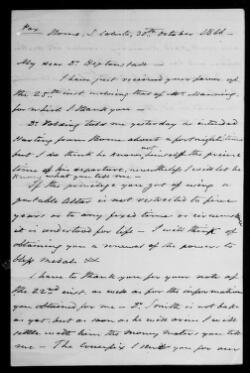 Pax Rome, S. Calisto, 30th October 1866 -
My dear Dr. Heptonstall -
I have just received your favour of
the 25th inst inclosing that of Mr. Manning
for which I thank you -
Dr. told me yesterday he intended
starting from Rome about a fortnight hence
but I do think he knows not himself the precise
time of his departure, nevertheless I will let him
know what you tell me -
If the privilege you got of using a
portable Altar is not restricted to five
years or to any fixed time or circumst
it is understood for life - I will think of
obtaining you a renewal of the power to
bless medals &c
I have to thank you for your note of
the 22nd inst, as well as for the information
you obtained for me - Dr. Smith is not back
as yet, but as soon as he will arrive I will
settle with him the money matters you tell
me - The Crucifix I sent you for our